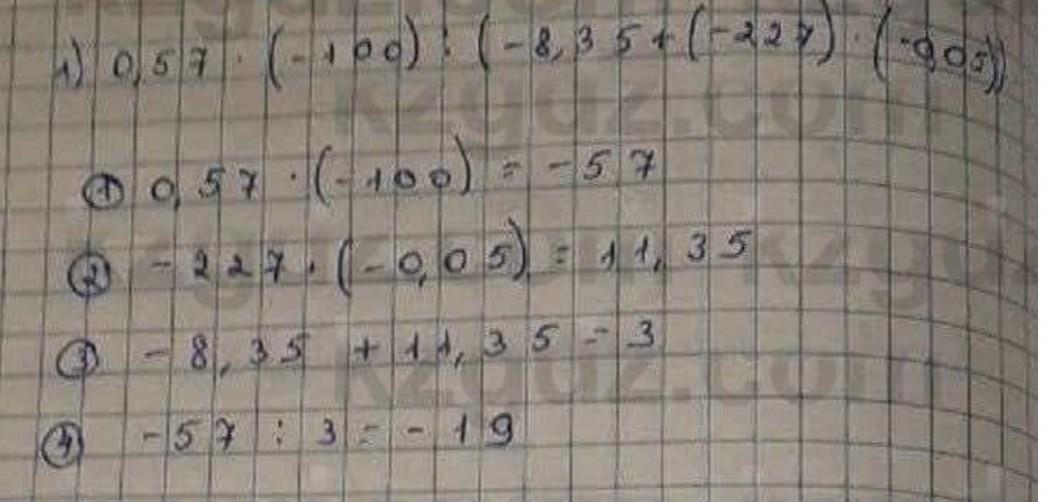 1) 0,57 · (-100) : (-8,35+(-227) · (-0,05))
① 0,57 · (-100) = -57
② -227 · (-0,05) = 11,35
③ -8,35 + 11,35 = 3
④ -57 : 3 = -19
kzgdz.com